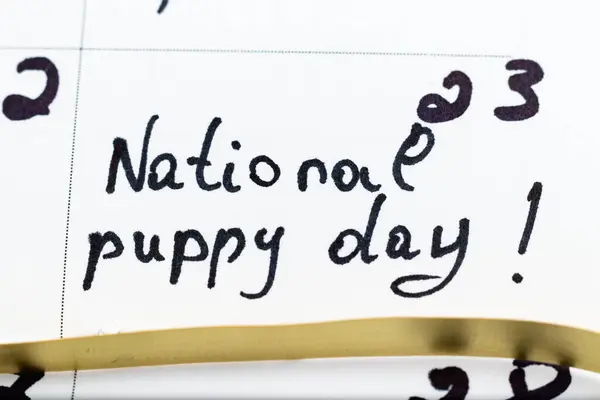 2 23
National
puppy day !